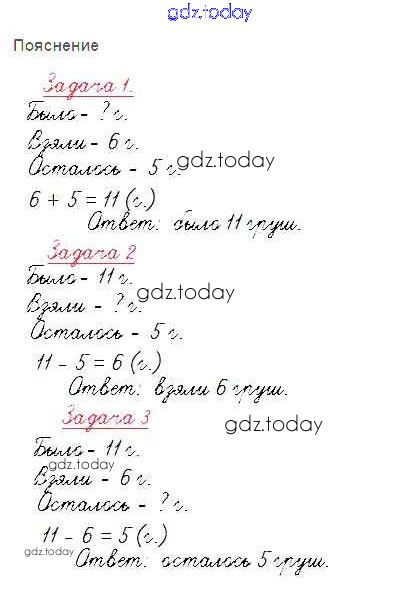 gdz.today
Пояснение
Задача 1.
Было - ? г.
Взяли - 6 г.
Осталось - 5 г.
gdz.today
6 + 5 = 11 (г.)
Ответ: было 11 груш.
Задача 2
Было - 11 г.
Взяли - ? г.
gdz.today
Осталось - 5 г.
11 - 5 = 6 (г.)
Ответ: взяли 6 груш.
Задача 3
gdz.today
Было - 11 г.
gdz.today
Взяли - 6 г.
Осталось - ? г.
11 - 6 = 5 (г.)
gdz.today
Ответ: осталось 5 груш.